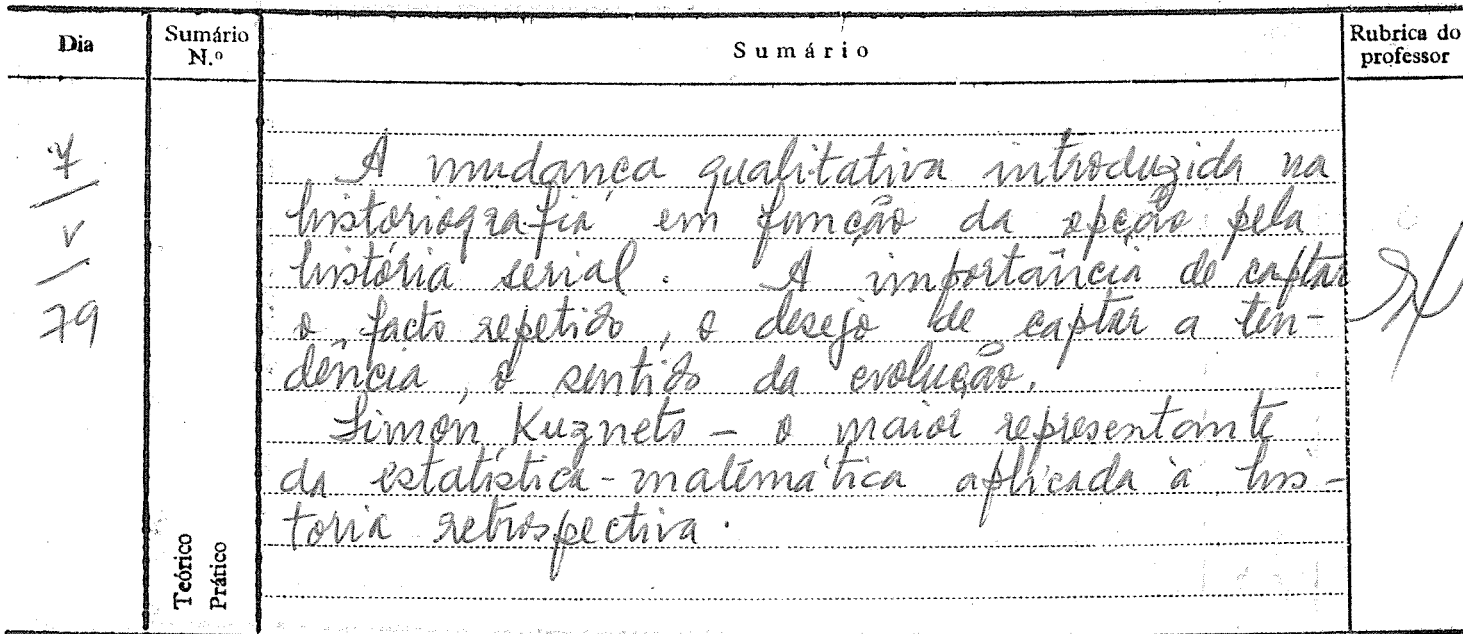 Dia
Sumário
N.º
Sumário
Rubrica do
professor
7
/
V
/
79
A mudança qualitativa introduzida na
historiografia em função da opção pela
história serial. A importância de captar
o facto repetido, o desejo de captar a ten-
dência, o sentido da evolução.
Simon Kuznets - o maior representante
da estatística-matemática aplicada à his-
toria retrospectiva.
Teórico
Prático